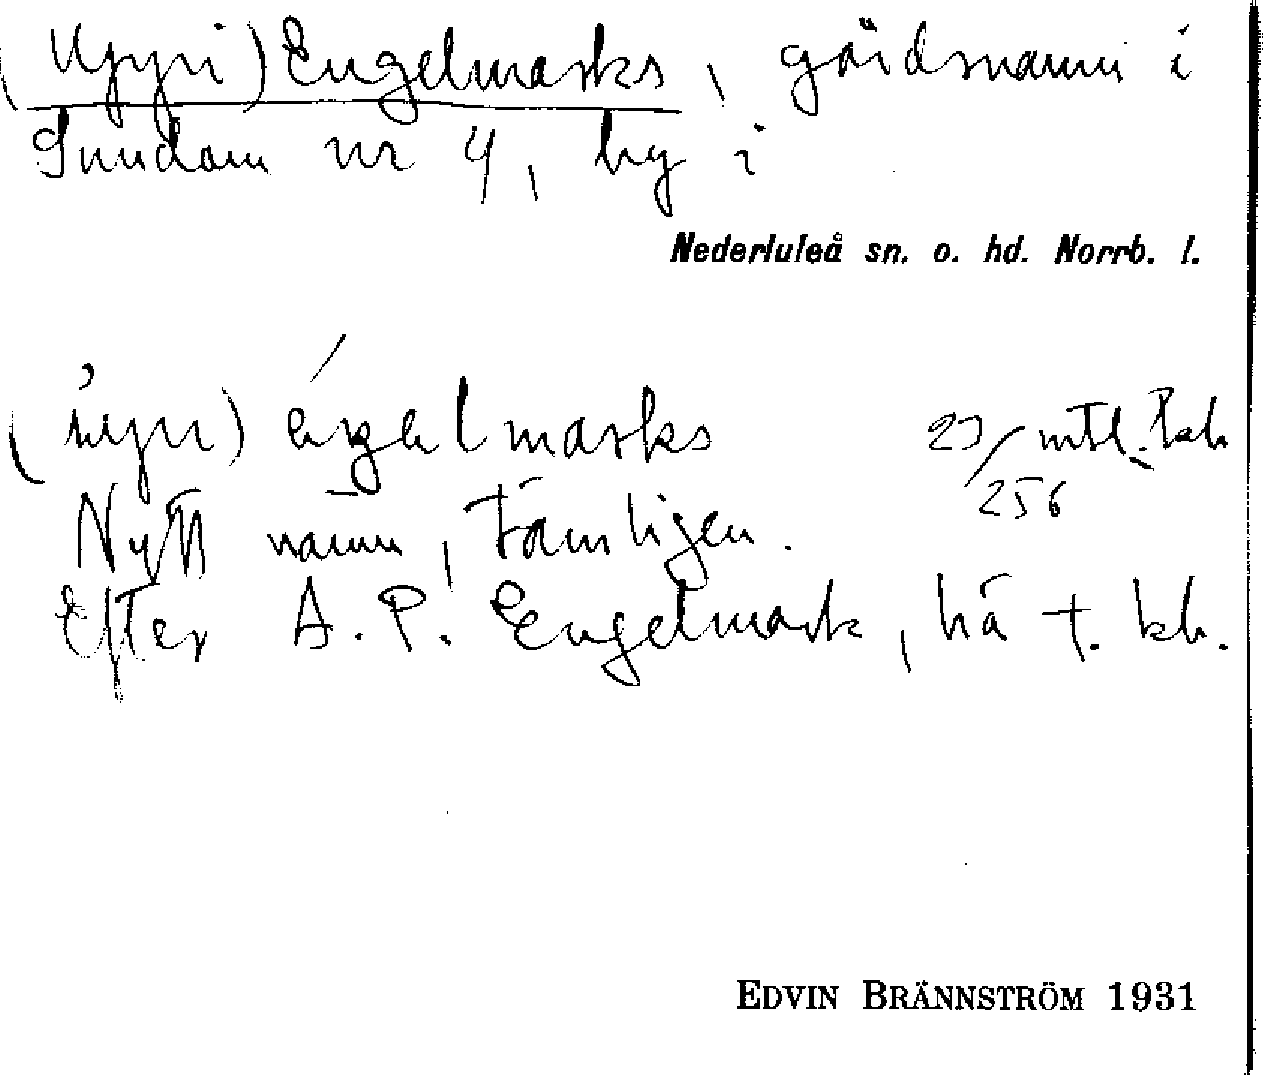 (Uppi) Engelmarks, gårdsnamn i
Sundom nr 4, by i
Nederluleå sn. o. hd. Norrb. l.
engelmarks 23/256 mtl.
Nytt namn, tämligen.
Efter A. P. Engelmark, hä t. kb.
EDVIN BRÄNNSTRÖM 1931